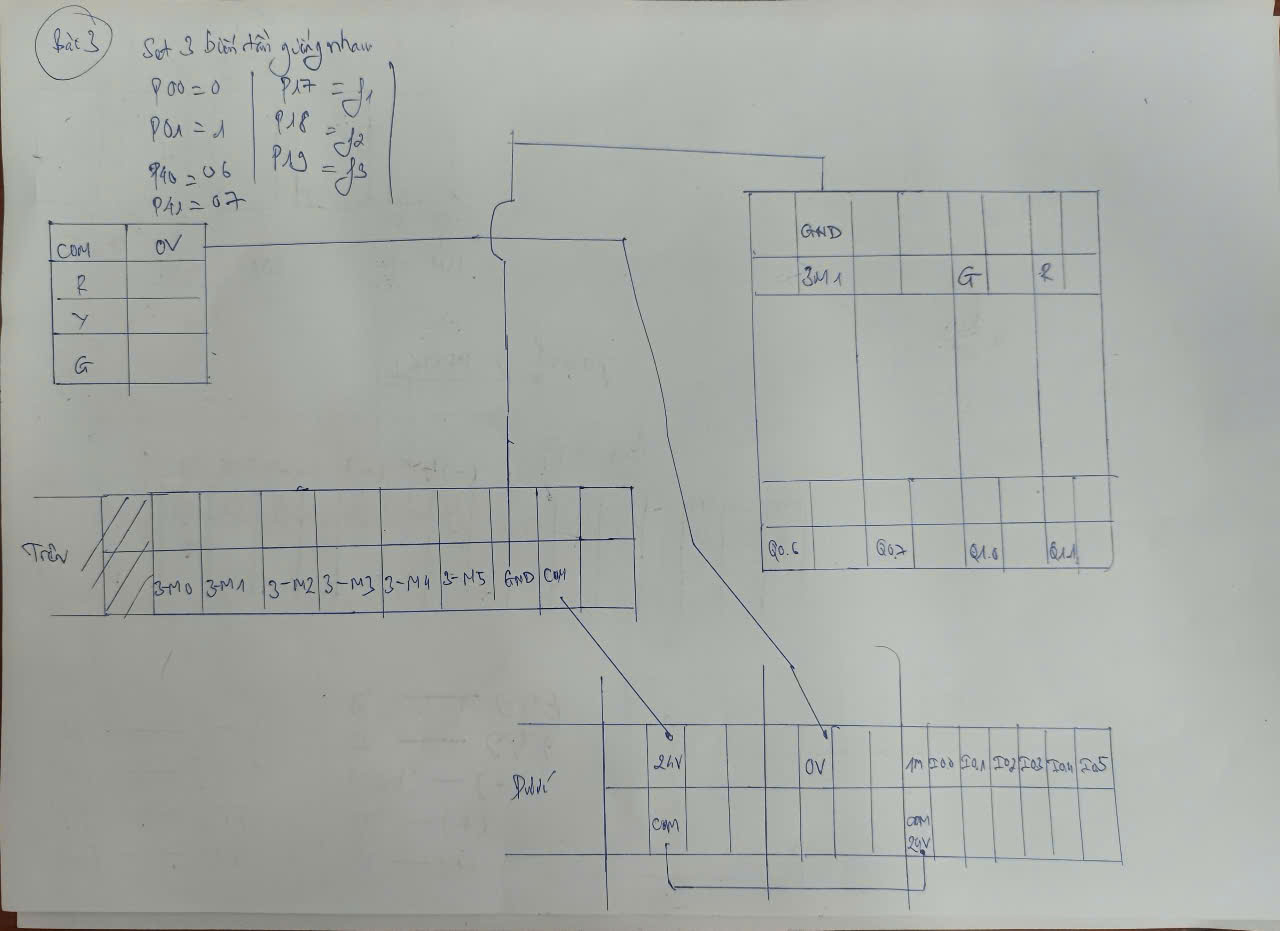 Bài 3
Set 3 biến tần giống nhau
P00 = 0
P01 = 1
P40 = 06
P41 = 07
P17 = f1
P18 = f2
P19 = f3
COM 0V
R
Y
G
GND
3M1 G R
Q0.6 Q0.7 Q1.0 Q1.1
Trên
3-M0 3-M1 3-M2 3-M3 3-M4 3-M5 GND COM
Dưới
24V 0V 1M I0.0 I0.1 I0.2 I0.3 I0.4 I0.5
COM COM
24V